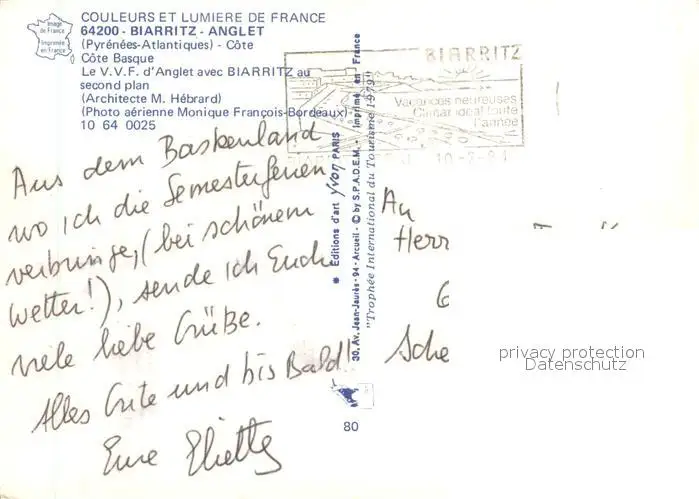 Image
de France
Imprimée
en France
COULEURS ET LUMIERE DE FRANCE
64200 - BIARRITZ - ANGLET
(Pyrénées-Atlantiques) - Côte
Côte Basque
Le V.V.F. d'Anglet avec BIARRITZ au
second plan
(Architecte M. Hébrard)
(Photo aérienne Monique François-Bordeaux)
10 64 0025
BIARRITZ
Vacances heureuses
Climat idéal toute
l'année
Aus dem Baskenland
wo ich die Semesterferien
verbringe, (bei schönem
Wetter!), sende ich Euch
viele liebe Grüße.
Alles Gute und bis Bald!
Eure Eliette
* Editions d'art yvon PARIS
30, Av. Jean-Jaurès - 94 - Arcueil - © by S.P.A.D.E.M. - Imprimé en France
"Trophée International du Tourisme 1979"
80
An
Herr
Sche
privacy protection
Datenschutz